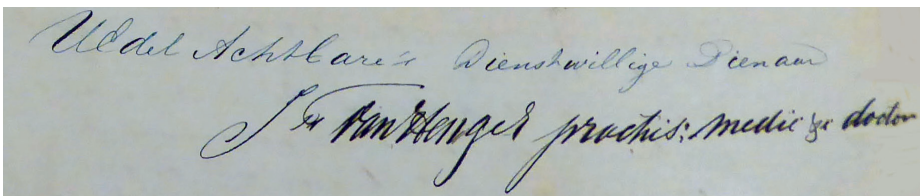 UEdel Achtbare's Dienstwillige Dienaar
van Hengel practis: medic doctor